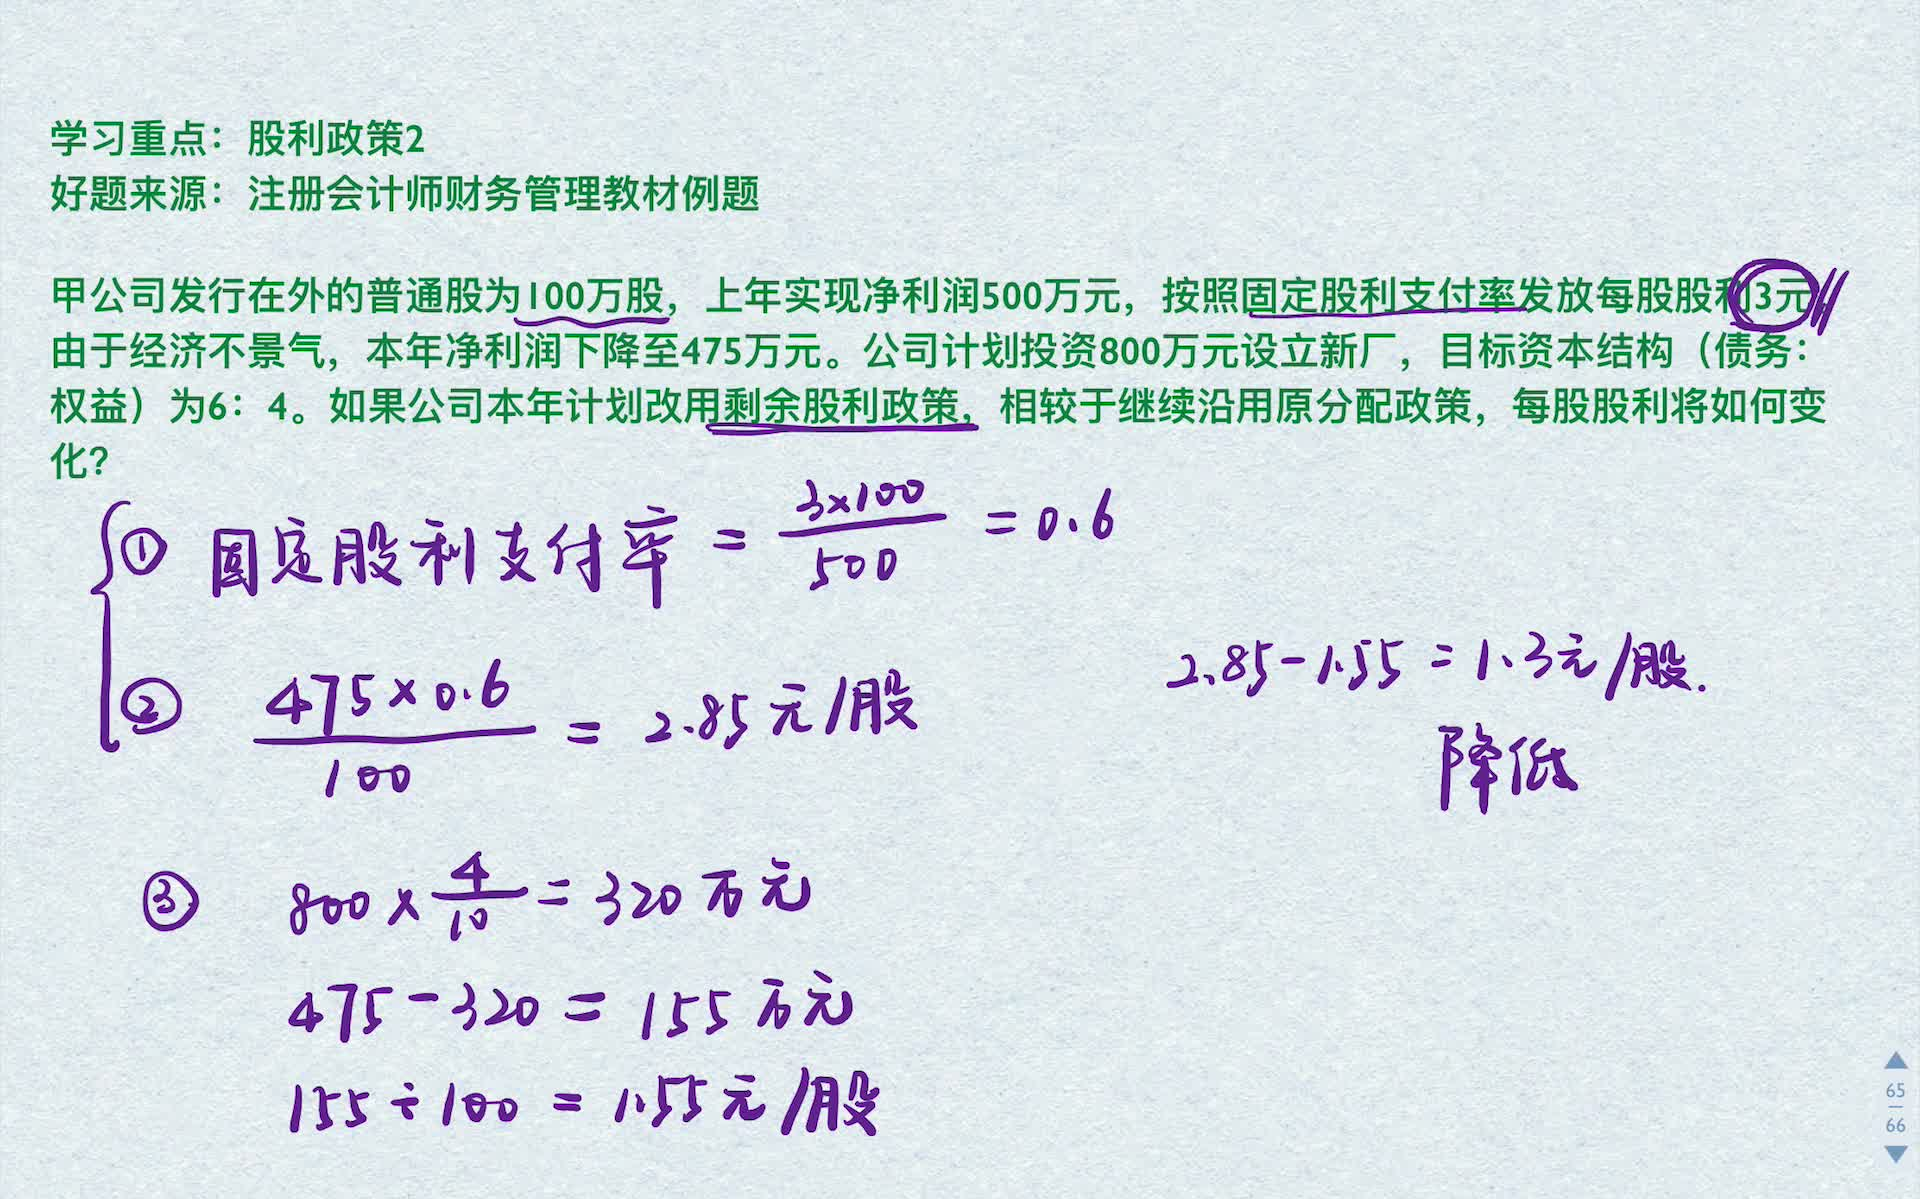 学习重点：股利政策2
好题来源：注册会计师财务管理教材例题
甲公司发行在外的普通股为100万股，上年实现净利润500万元，按照固定股利支付率发放每股股利3元
由于经济不景气，本年净利润下降至475万元。公司计划投资800万元设立新厂，目标资本结构（债务：
权益）为6：4。如果公司本年计划改用剩余股利政策，相较于继续沿用原分配政策，每股股利将如何变
化？
① 固定股利支付率 = 3×100/500 = 0.6
② 475×0.6/100 = 2.85元/股
2.85-1.55=1.3元/股.
降低
③ 800×4/10=320万元
475-320=155万元
155÷100=1.55元/股
65
66